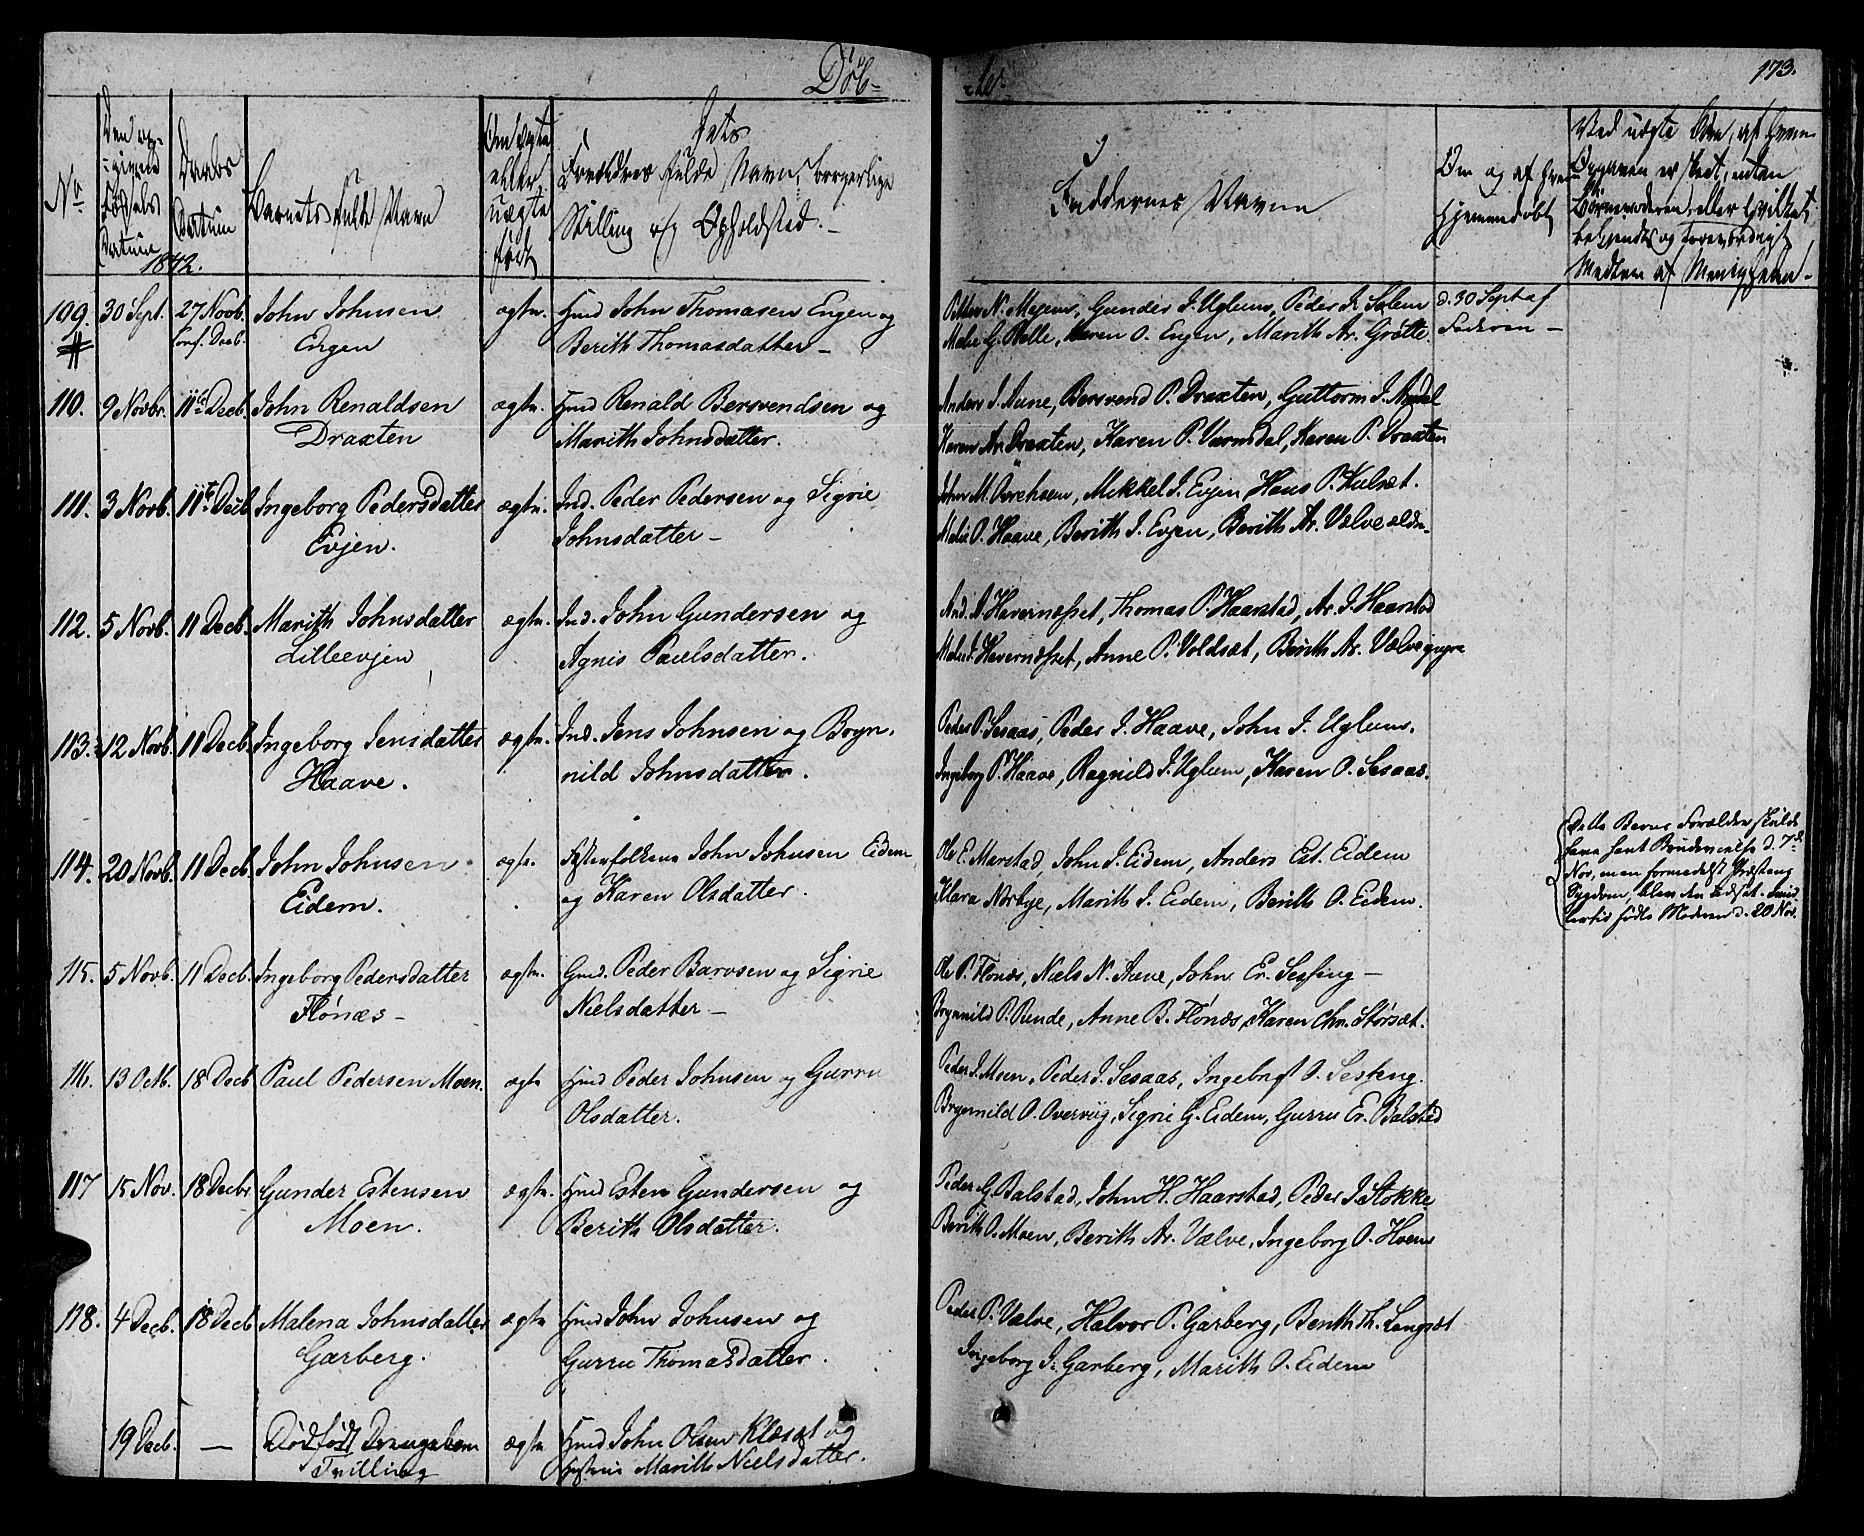 Døb-
-te.
173.
No
Den op-
givne
Fødsels
Datum
Daabs
Datum
Barnets fulde Navn
Om ægte
eller
uægte
født
Dets
Forældres fulde Navn, borgerlige
Stilling og Opholdsted.
Faddernes Navne
Om og af hvem
hjemmedøbt
Ved uægte Børn, af hvem
Opgaven er skeet, enten
Barnemoderen, eller hvilket
bekjendt og troværdigt
Medlem af Menigheden.
1842.
109. 30 Sept. 27 Novb. John Johnsen ægte. Hmd John Thomasen Engen og
Conf. Decb. Engen Berith Thomasdatter –
Peder N. Mogens, Gunder J. Uglum, Peder J. Solem d. 30 Sept af
Malie G. Balle, Karen O. Engen, Marith Ar. Grøtte. Faderen –
110. 9 Novbr. 11te Decb. John Renaldsen ægte. Hmd Renald Bersvendsen og
Draxten Marith Johnsdatter.
Anders J. Aune, Bersvend P. Draxten, Guttorm J.
Karen Ar. Draxten, Karen P. Varmdal, Karen P. Draxten
111. 3 Novb. 11te Decb Ingeborg Pedersdatter ægte. Ind. Peder Pedersen og Sigrie
Evjen. Johnsdatter –
John M. Overhoem, Mikkel J. Evjen Hans P. Kulset.
Malie O. Haave, Berith J. Evjen, Berith Ar. Vælve ældre
112. 5 Novb. 11 Decb. Marith Johnsdatter ægte. Ind. John Gundersen og
Lilleevjen Agnis Paulsdatter.
And. A. Havernæsset, Thomas P. Haarstad, Ar. J. Haarstad
Malie J. Havernæsset, Anne P. Voldsæt, Berith Ar. Vælve yngre
113. 12 Novb. 11 Decb. Ingeborg Jensdatter ægte. Ind. Jens Johnsen og Bryn-
Haave. nild Johnsdatter.
Peder P. Sesaas, Peder J. Haave, John J. Uglum.
Ingeborg P. Haave, Ragnild J. Uglum, Karen O. Sesaas.
114. 20 Novb. 11 Decb. John Johnsen ægte. Ægtefolkene John Johnsen Eidem
Eidem. og Karen Olsdatter.
Ole E. Marstad, John J. Eidem, Anders Est. Eidem
Klara Norbye, Marith J. Eidem, Berith O. Eidem.
Dette Barns Forældre skulde
have havt Brudevielse d. 7de
Nov, men formedelst Præstens
Sygdom, blev den udsat. Imid-
lertid fødte Moderen d. 20 Nov.
115. 5 Novb. 11 Decb. Ingeborg Pedersdatter ægte. Gmd. Peder Barosen og Sigrie
Flønæs – Nielsdatter –
Ole P. Flønæs, Niels N. Aune, John Er. Sesseng –
Brynnild P. Runde, Anne B. Flønæs, Karen Chr. Størsæt.
116. 13 Octb. 18 Decb Paul Pedersen Moen. ægte Hmd Peder Johnsen og Gurru
Olsdatter.
Peder J. Moen, Peder J. Sesaas, Ingebrigt O. Sesseng.
Brynnild O. Overviig, Sigrie G. Eidem, Gurru Er. Balstad
117 15 Nov. 18 Decbr. Gunder Estensen ægte. Hmd Esten Gundersen og
Moen. Berith Olsdatter.
Peder G. Balstad, John H. Haarstad, Peder J. Stokke
Berith O. Moen, Berith Ar. Vælve, Ingeborg O. Hoem
118. 4 Decb. 18 Decb Malena Johnsdatter ægte Hmd John Johnsen og
Garberg. Gurru Thomasdatter.
Peder P. Vælve, Halvor P. Garberg, Berith Th. Langsæt
Ingeborg J. Garberg, Marith O. Eidem
19 Decb. — Dødfødt Drengebarn ægte Hmd John Olsen Klæsæt og
Tvilling Hustrue Marith Nielsdatter.